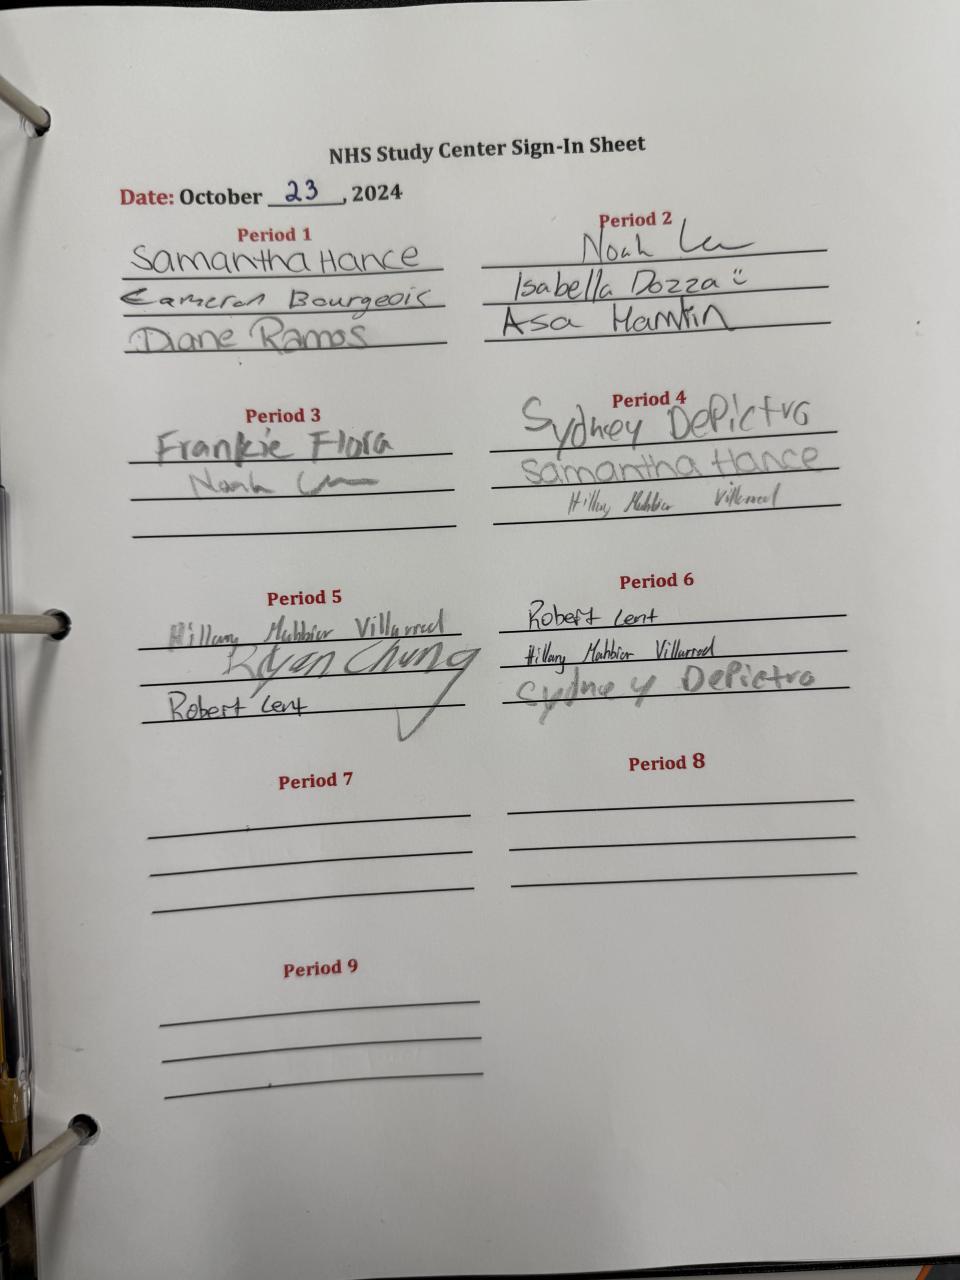 NHS Study Center Sign-In Sheet
Date: October 23, 2024
Period 1
Samantha Hance
Cameron Bourgeois
Diane Ramos
Period 2
Noah
Isabella Dozza :)
Asa
Period 3
Frankie Flora
Noah
Period 4
Sydney DePietro
Samantha Hance
Hillary Villarreal
Period 5
Hillary Villarreal
Ryan Chung
Robert Lent
Period 6
Robert Lent
Hillary Villarreal
Sydney DePietro
Period 7
Period 8
Period 9